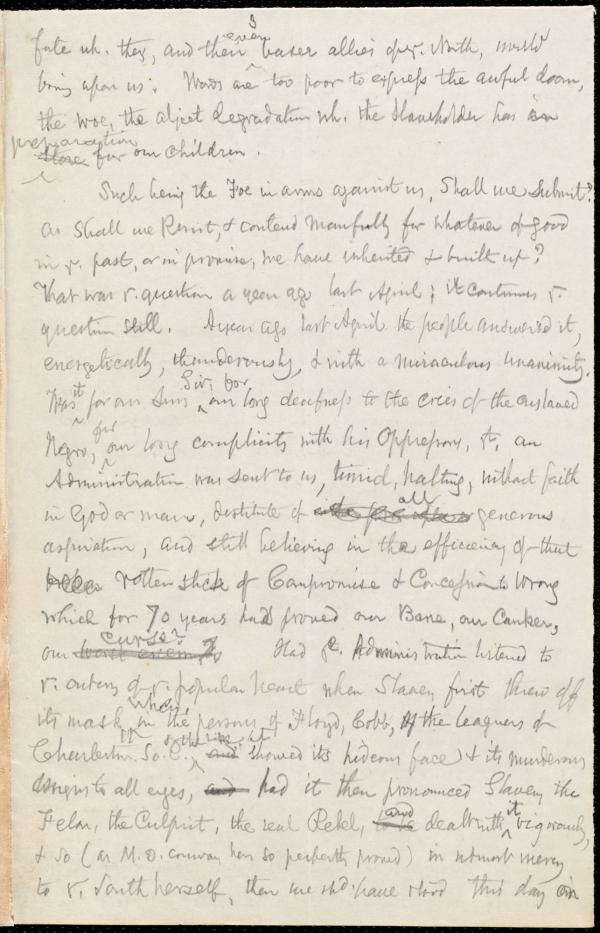 fate wh. they, and their even baser allies of yr. North, would
bring upon us: Words are too poor to express the awful doom,
the woe, the abject degradation wh. the Slaveholder has in
preparation
store for our children.
Such being the Foe in arms against us, Shall we submit?
or Shall we Resist, & contend manfully for whatever of good
in yr. past, or in promise, we have inherited & built up?
That was yr. question a year ago last April; it continues yr.
question still. A year ago last April the people answered it,
energetically, thunderously, & with a miraculous unanimity.
Was it for our Sins, Sir, for our long deafness to the cries of the enslaved
Negro, for our long complicity with his Oppressors, that an
Administration was sent to us, timid, halting, without faith
in God or man, destitute of all generous
aspiration, and still believing in the efficiency of that
rotten stick of Compromise & Concession to Wrong
which for 70 years had proved our Bane, our Canker,
our curse? Had ye. Administration listened to
yr. outcry of yr. popular heart when Slavery first threw off
its mask, when in the persons of Floyd, Cobb, & the leaguers of
Charleston, So. C., it showed its hideous face & its murderous
designs to all eyes, had it then pronounced Slavery the
Felon, the Culprit, the real Rebel, and dealt with it vigorously,
& so (as M. D. Conway has so perfectly proved) in utmost mercy
to yr. South herself, then we shd. have stood this day in